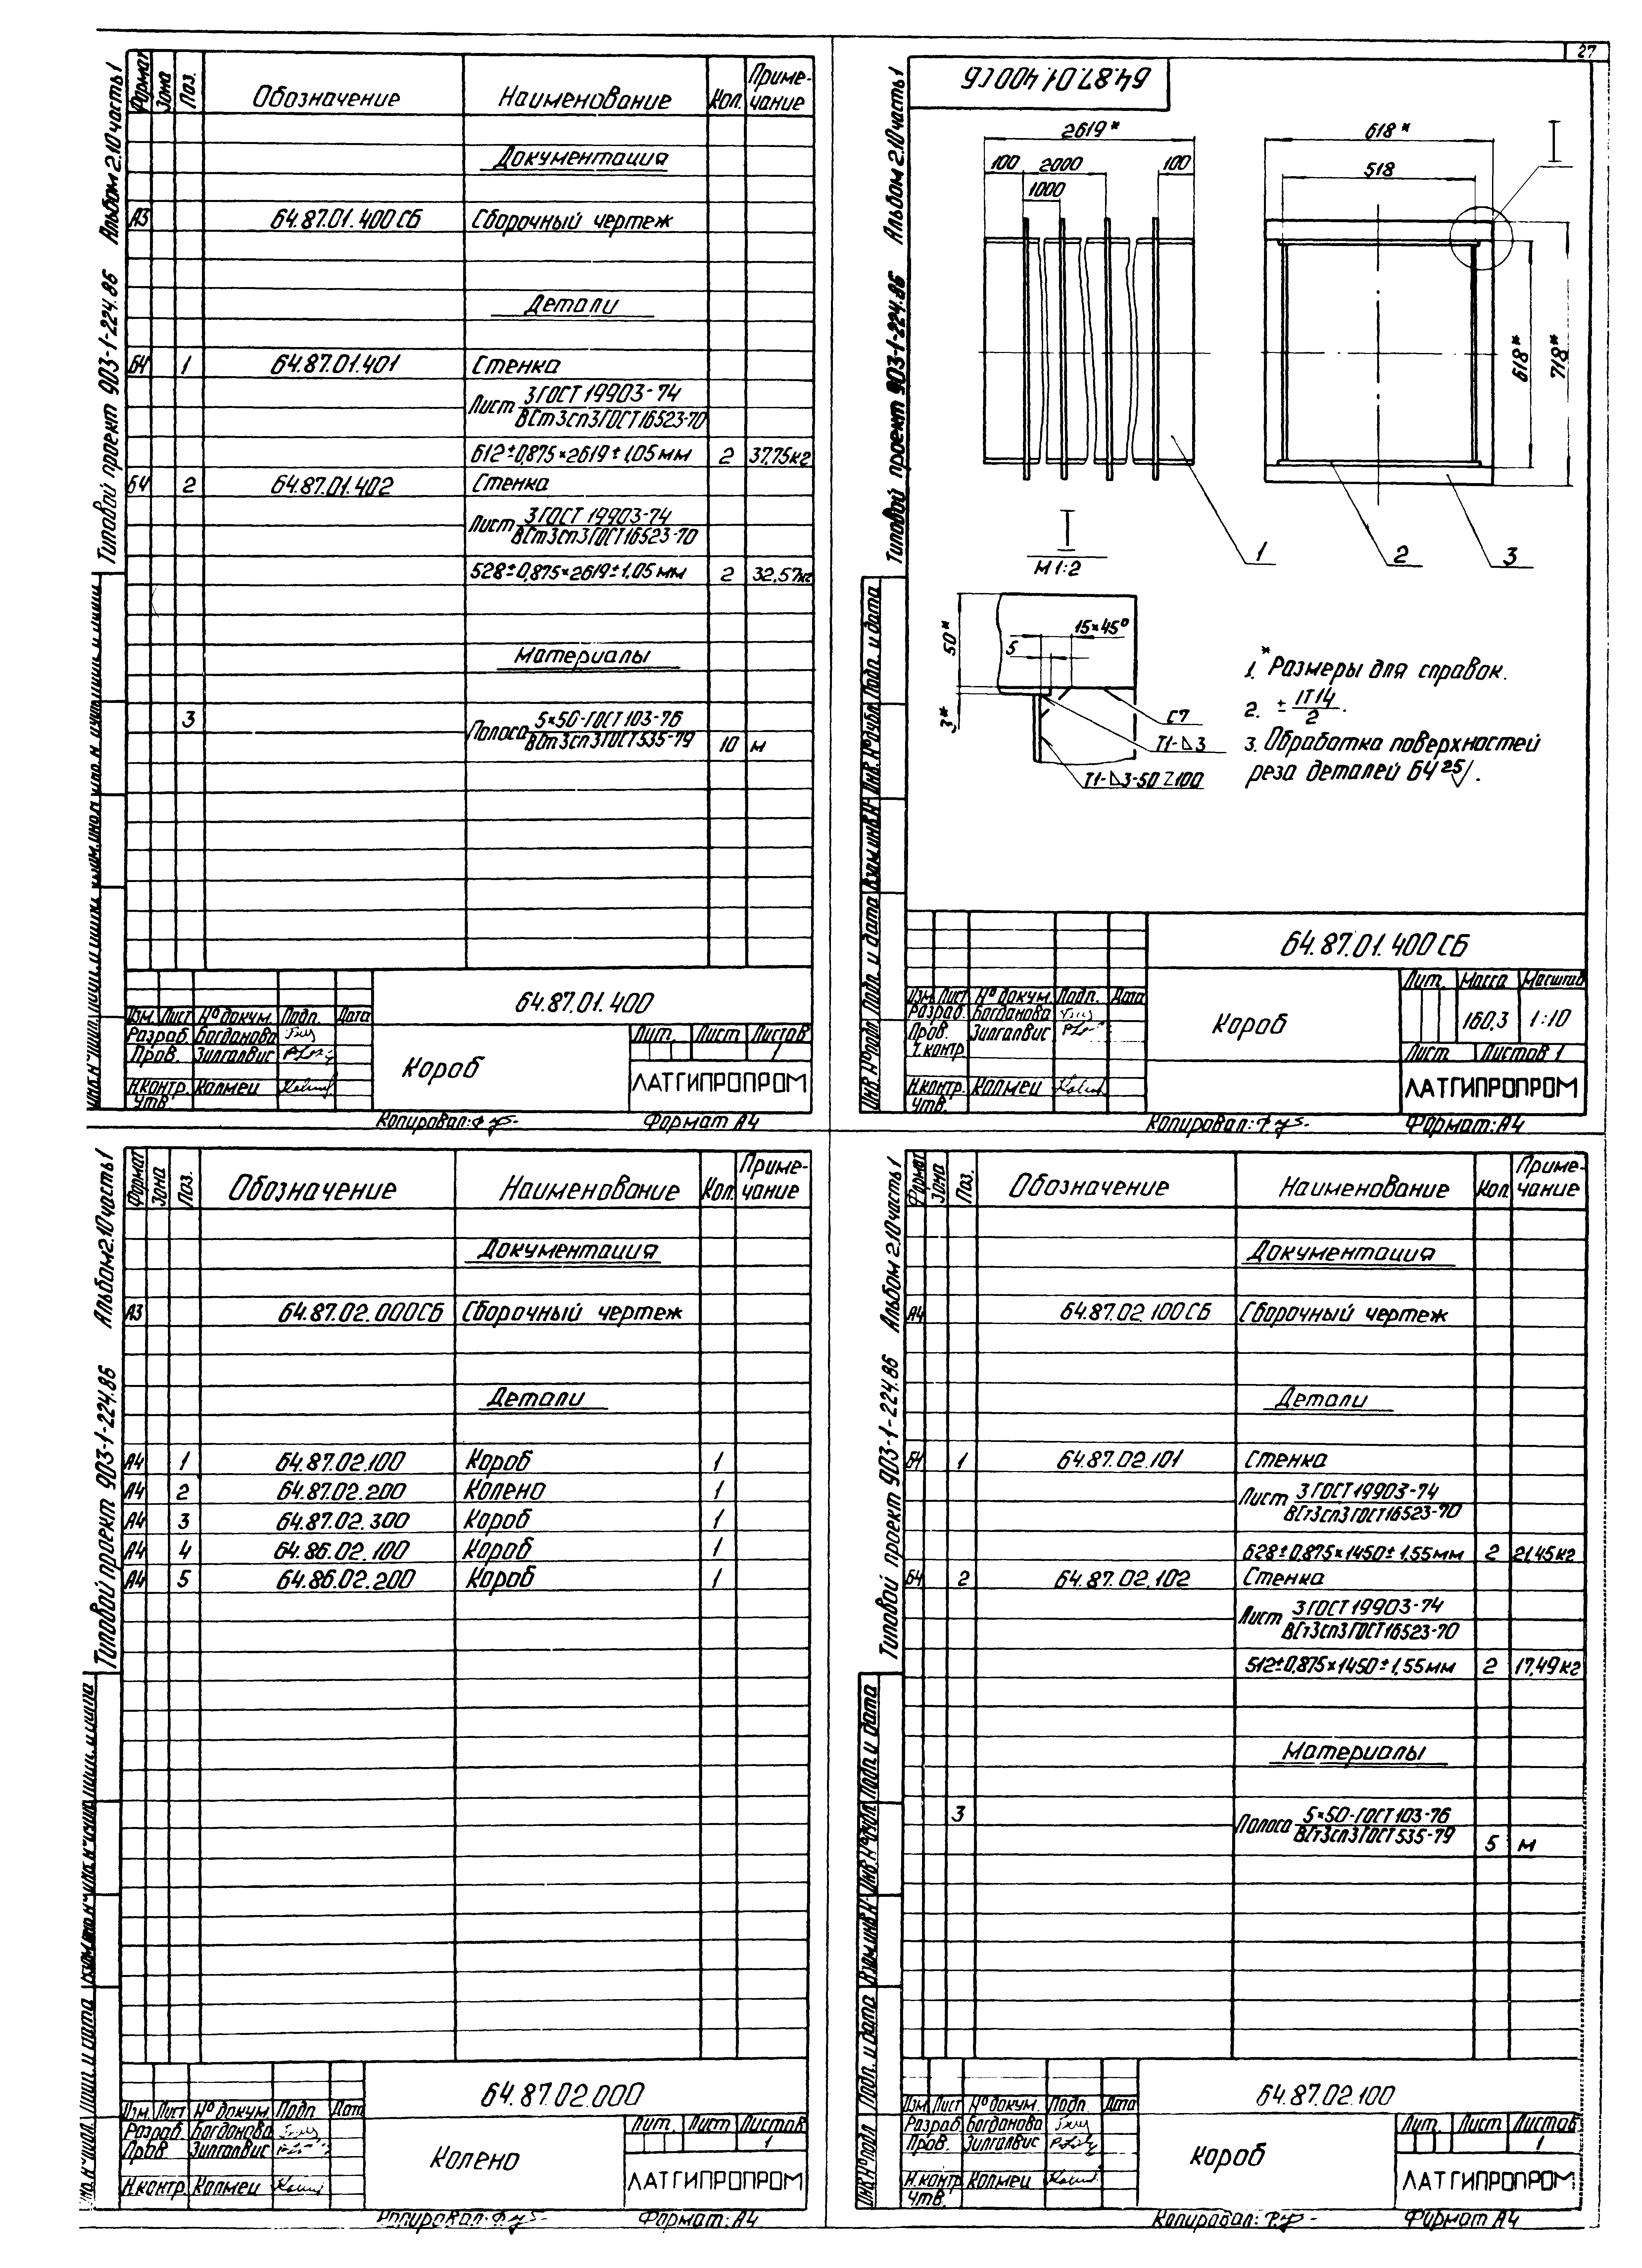 27
Типовой проект 903-1-224.86 Альбом 2.10 часть 1
Формат Зона Поз. Обозначение Наименование Кол. Приме-
чание
Документация
А3 64.87.01.400СБ Сборочный чертеж
Детали
БЧ 1 64.87.01.401 Стенка
Лист 3 ГОСТ 19903-74
ВСт3сп3 ГОСТ 16523-70
612±0,875×2619±1,05 мм 2 37,75кг
БЧ 2 64.87.01.402 Стенка
Лист 3 ГОСТ 19903-74
ВСт3сп3 ГОСТ 16523-70
528±0,875×2619±1,05 мм 2 32,57кг
Материалы
3 Полоса 5×50-ГОСТ 103-76
ВСт3сп3 ГОСТ 535-79 10 м
64.87.01.400
Изм. Лист № докум. Подп. Дата
Разраб. Богданова
Пров. Зилгалвис
Н.контр. Колмец
Утв.
Короб
Лит. Лист Листов
1
ЛАТГИПРОПРОМ
Копировал: Формат А4
Типовой проект 903-1-224.86 Альбом 2.10 часть 1
64.87.01.400СБ
2619*
100 2000 100
1000
618*
518
I
618*
718*
1 2 3
I
М 1:2
50*
3*
15×45°
5
С7
Т1-△3
Т1-△3-50 Z 100
1. * Размеры для справок.
2. ± IT14
2 .
3. Обработка поверхностей
реза деталей БЧ 25√.
Инв. № подл. Подп. и дата Взам. инв. № Инв. № дубл. Подп. и дата
64.87.01.400СБ
Изм. Лист № докум. Подп. Дата
Разраб. Богданова
Пров. Зилгалвис
Т.контр.
Н.контр. Колмец
Утв.
Короб
Лит. Масса Масштаб
160,3 1:10
Лист Листов 1
ЛАТГИПРОПРОМ
Копировал: Формат: А4
Типовой проект 903-1-224.86 Альбом 2.10 часть 1
Формат Зона Поз. Обозначение Наименование Кол. Приме-
чание
Документация
А3 64.87.02.000СБ Сборочный чертеж
Детали
А4 1 64.87.02.100 Короб 1
А4 2 64.87.02.200 Колено 1
А4 3 64.87.02.300 Короб 1
А4 4 64.86.02.100 Короб 1
А4 5 64.86.02.200 Короб 1
64.87.02.000
Изм. Лист № докум. Подп. Дат
Разраб. Богданова
Пров. Зилгалвис
Н.контр. Колмец
Колено
Лит. Лист Листов
1
ЛАТГИПРОПРОМ
Копировал: Формат: А4
Типовой проект 903-1-224.86 Альбом 2.10 часть 1
Формат Зона Поз. Обозначение Наименование Кол Приме-
чание
Документация
А4 64.87.02.100СБ Сборочный чертеж
Детали
БЧ 1 64.87.02.101 Стенка
Лист 3 ГОСТ 19903-74
ВСт3сп3 ГОСТ 16523-70
628±0,875×1450±1,55 мм 2 21,45кг
БЧ 2 64.87.02.102 Стенка
Лист 3 ГОСТ 19903-74
ВСт3сп3 ГОСТ 16523-70
512±0,875×1450±1,55 мм 2 17,49кг
Материалы
3 Полоса 5×50-ГОСТ 103-76
ВСт3сп3 ГОСТ 535-79 5 м
Инв. № подл Подп. и дата Взам. инв. № Инв. № дубл. Подп. и дата
64.87.02.100
Изм. Лист № докум. Подп. Дата
Разраб. Богданова
Пров. Зилгалвис
Н.контр. Колмец
Утв.
Короб
Лит. Лист Листов
1
ЛАТГИПРОПРОМ
Копировал: Формат А4